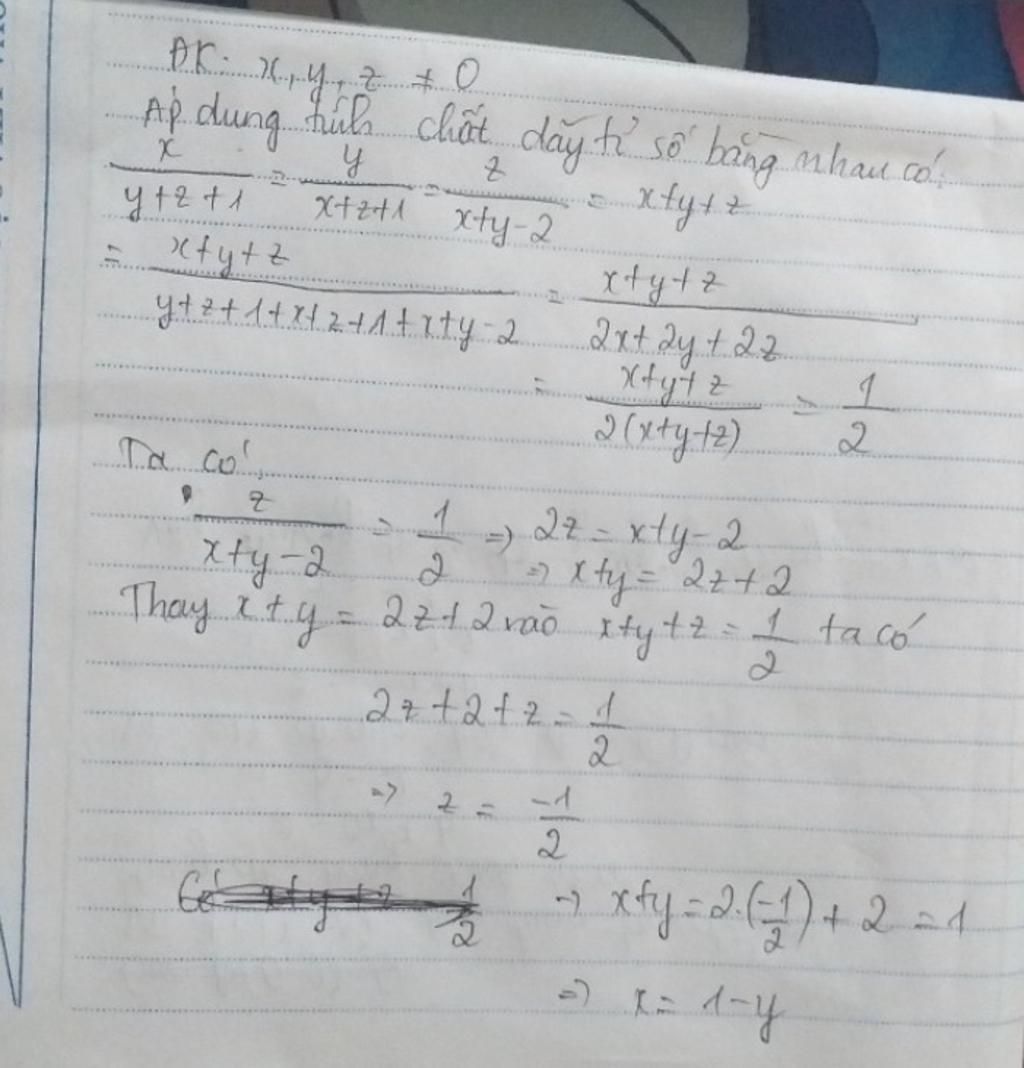 ĐK: x, y, z ≠ 0
Áp dụng tính chất dãy tỉ số bằng nhau có:
x/(y+z+1) = y/(x+z+1) = z/(x+y-2) = x+y+z
= (x+y+z)/(y+z+1+x+z+1+x+y-2) = (x+y+z)/(2x+2y+2z)
= (x+y+z)/(2(x+y+z)) = 1/2
Ta có:
z/(x+y-2) = 1/2 => 2z = x+y-2
=> x+y = 2z+2
Thay x+y = 2z+2 vào x+y+z = 1/2 ta có
2z+2+z = 1/2
=> z = -1/2
=> x+y = 2.(-1/2) + 2 = 1
=> x = 1-y